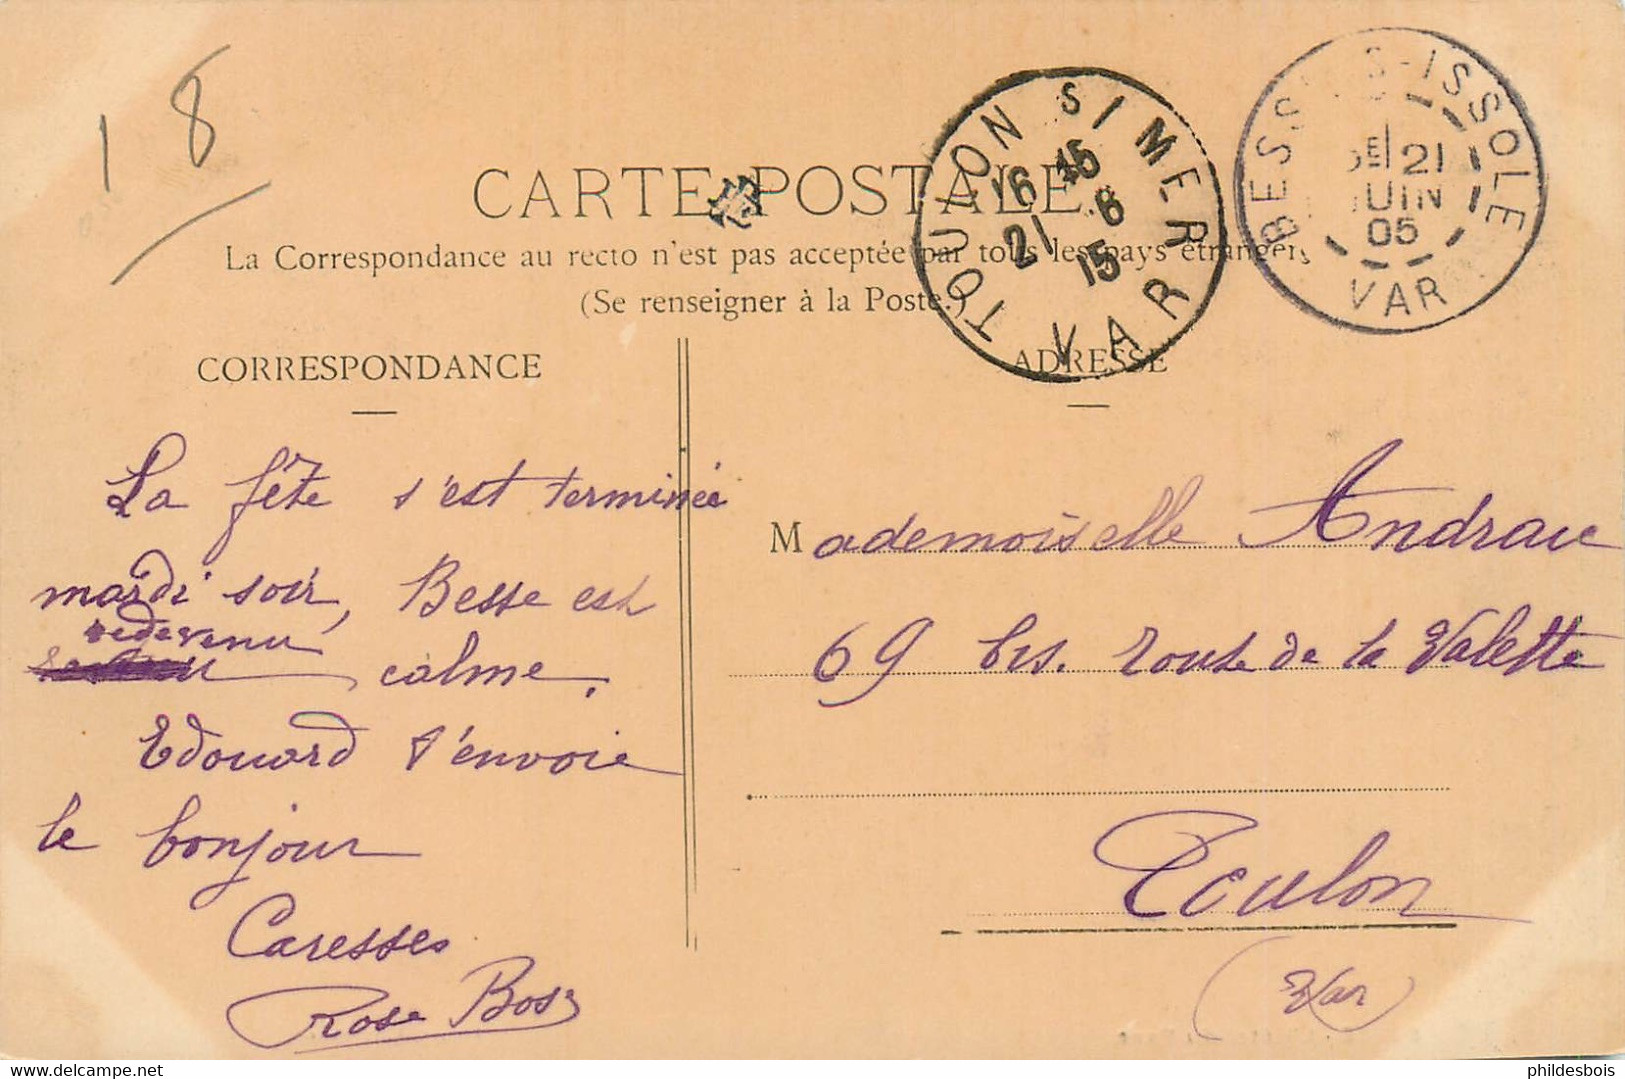 1 8
CARTE POSTALE
La Correspondance au recto n'est pas acceptée par tous les pays étrangers
(Se renseigner à la Poste.)
TOULON SI MER
16 15
21 6
15
VAR
BESSE-S-ISSOLE
2E 21
JUIN
05
VAR
CORRESPONDANCE
La fête s'est terminée
mardi soir, Besse est
redevenu calme.
Edouard t'envoie
le bonjour
Caresses
Rose Bos
ADRESSE
Mademoiselle
69 bis. route de la Valette
Toulon
(Var)
delcampe.net
phildesbois